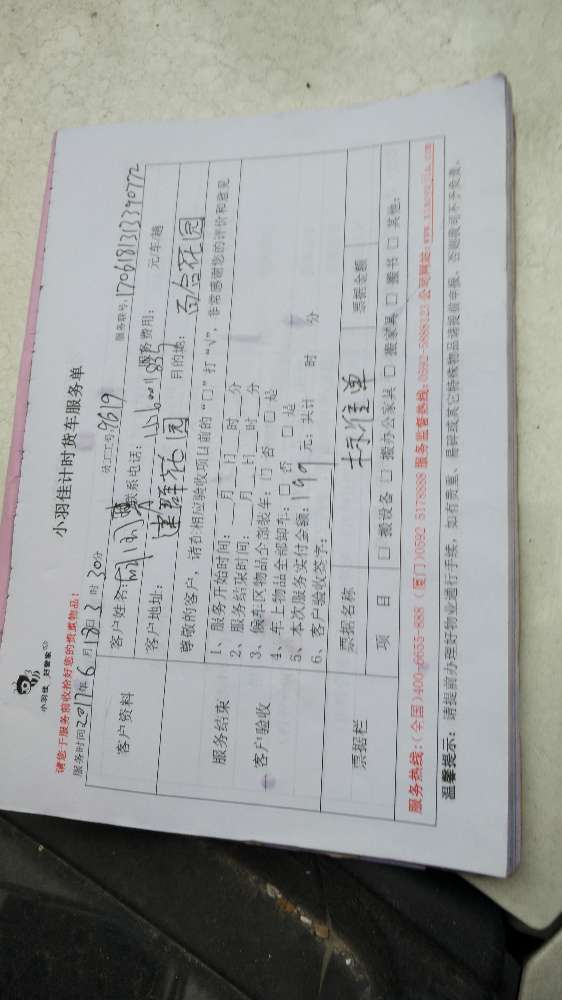 小羽佳 好管家
小羽佳计时货车服务单
请您于服务前收拾好您的贵重物品!
服务时间2017年6月18日3时30分 员工工号:9619 服务联号:1706181313390772
客户资料
客户姓名: 联系电话: 服务费用: 元/车/趟
客户地址: 建群花园 目的地: 百合花园
服务结束
客户验收
尊敬的客户,请在相应验收项目前的“□”打“√”,非常感谢您的评价和意见
1、服务开始时间:__月__日__时__分
2、服务结束时间:__月__日__时__分
3、候车区物品全部装车:□ 否 □ 是
4、车上物品全部卸车:□ 否 □ 是
5、本次服务实付金额:199元; 共计 时 分
6、客户验收签字:
票据栏
票据名称 标准单 票据金额
项 目 □ 搬设备 □ 搬办公家具 □ 搬家具 □ 搬书 □ 其他:
服务热线:(全国)400-6655-888 (厦门)0592-5178888 服务监督热线:0592-5888123 公司网站:
温馨提示:请提前办理好物业通行手续,如有贵重、易碎或其它特殊物品请提前申报,否则我司不予负责。